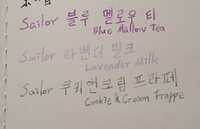 Sailor 블루 멜로우 티
Blue Mallow Tea
Sailor 라벤더 밀크
Lavender Milk
Sailor 쿠키앤크림 프라페
Cookie & Cream Frappe